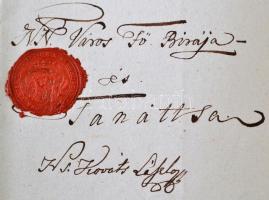 NN Város Fő Birája
és
Tanáttsa
Kováts László